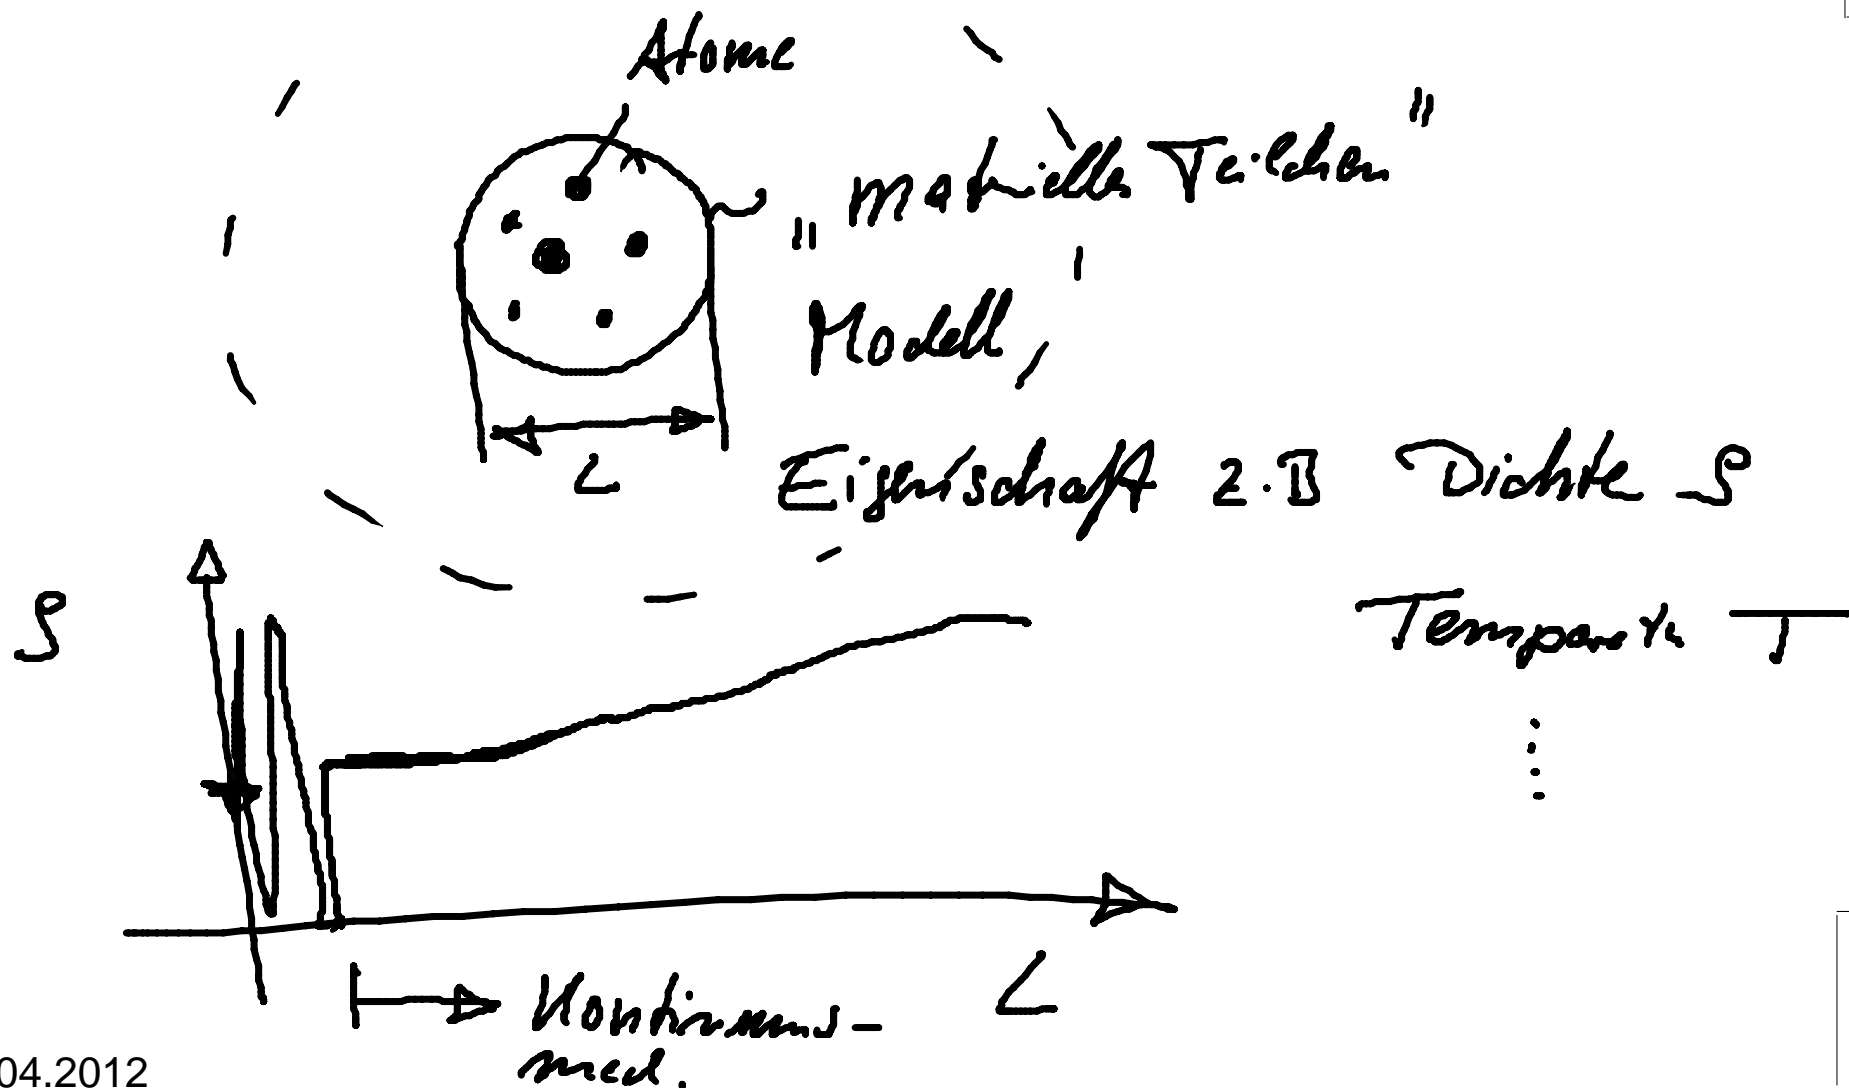 Atome
"materielles Teilchen"
Modell,
L
Eigenschaft z.B Dichte ρ
ρ
Temperatur T
L
Kontinuums-
mech.
04.2012